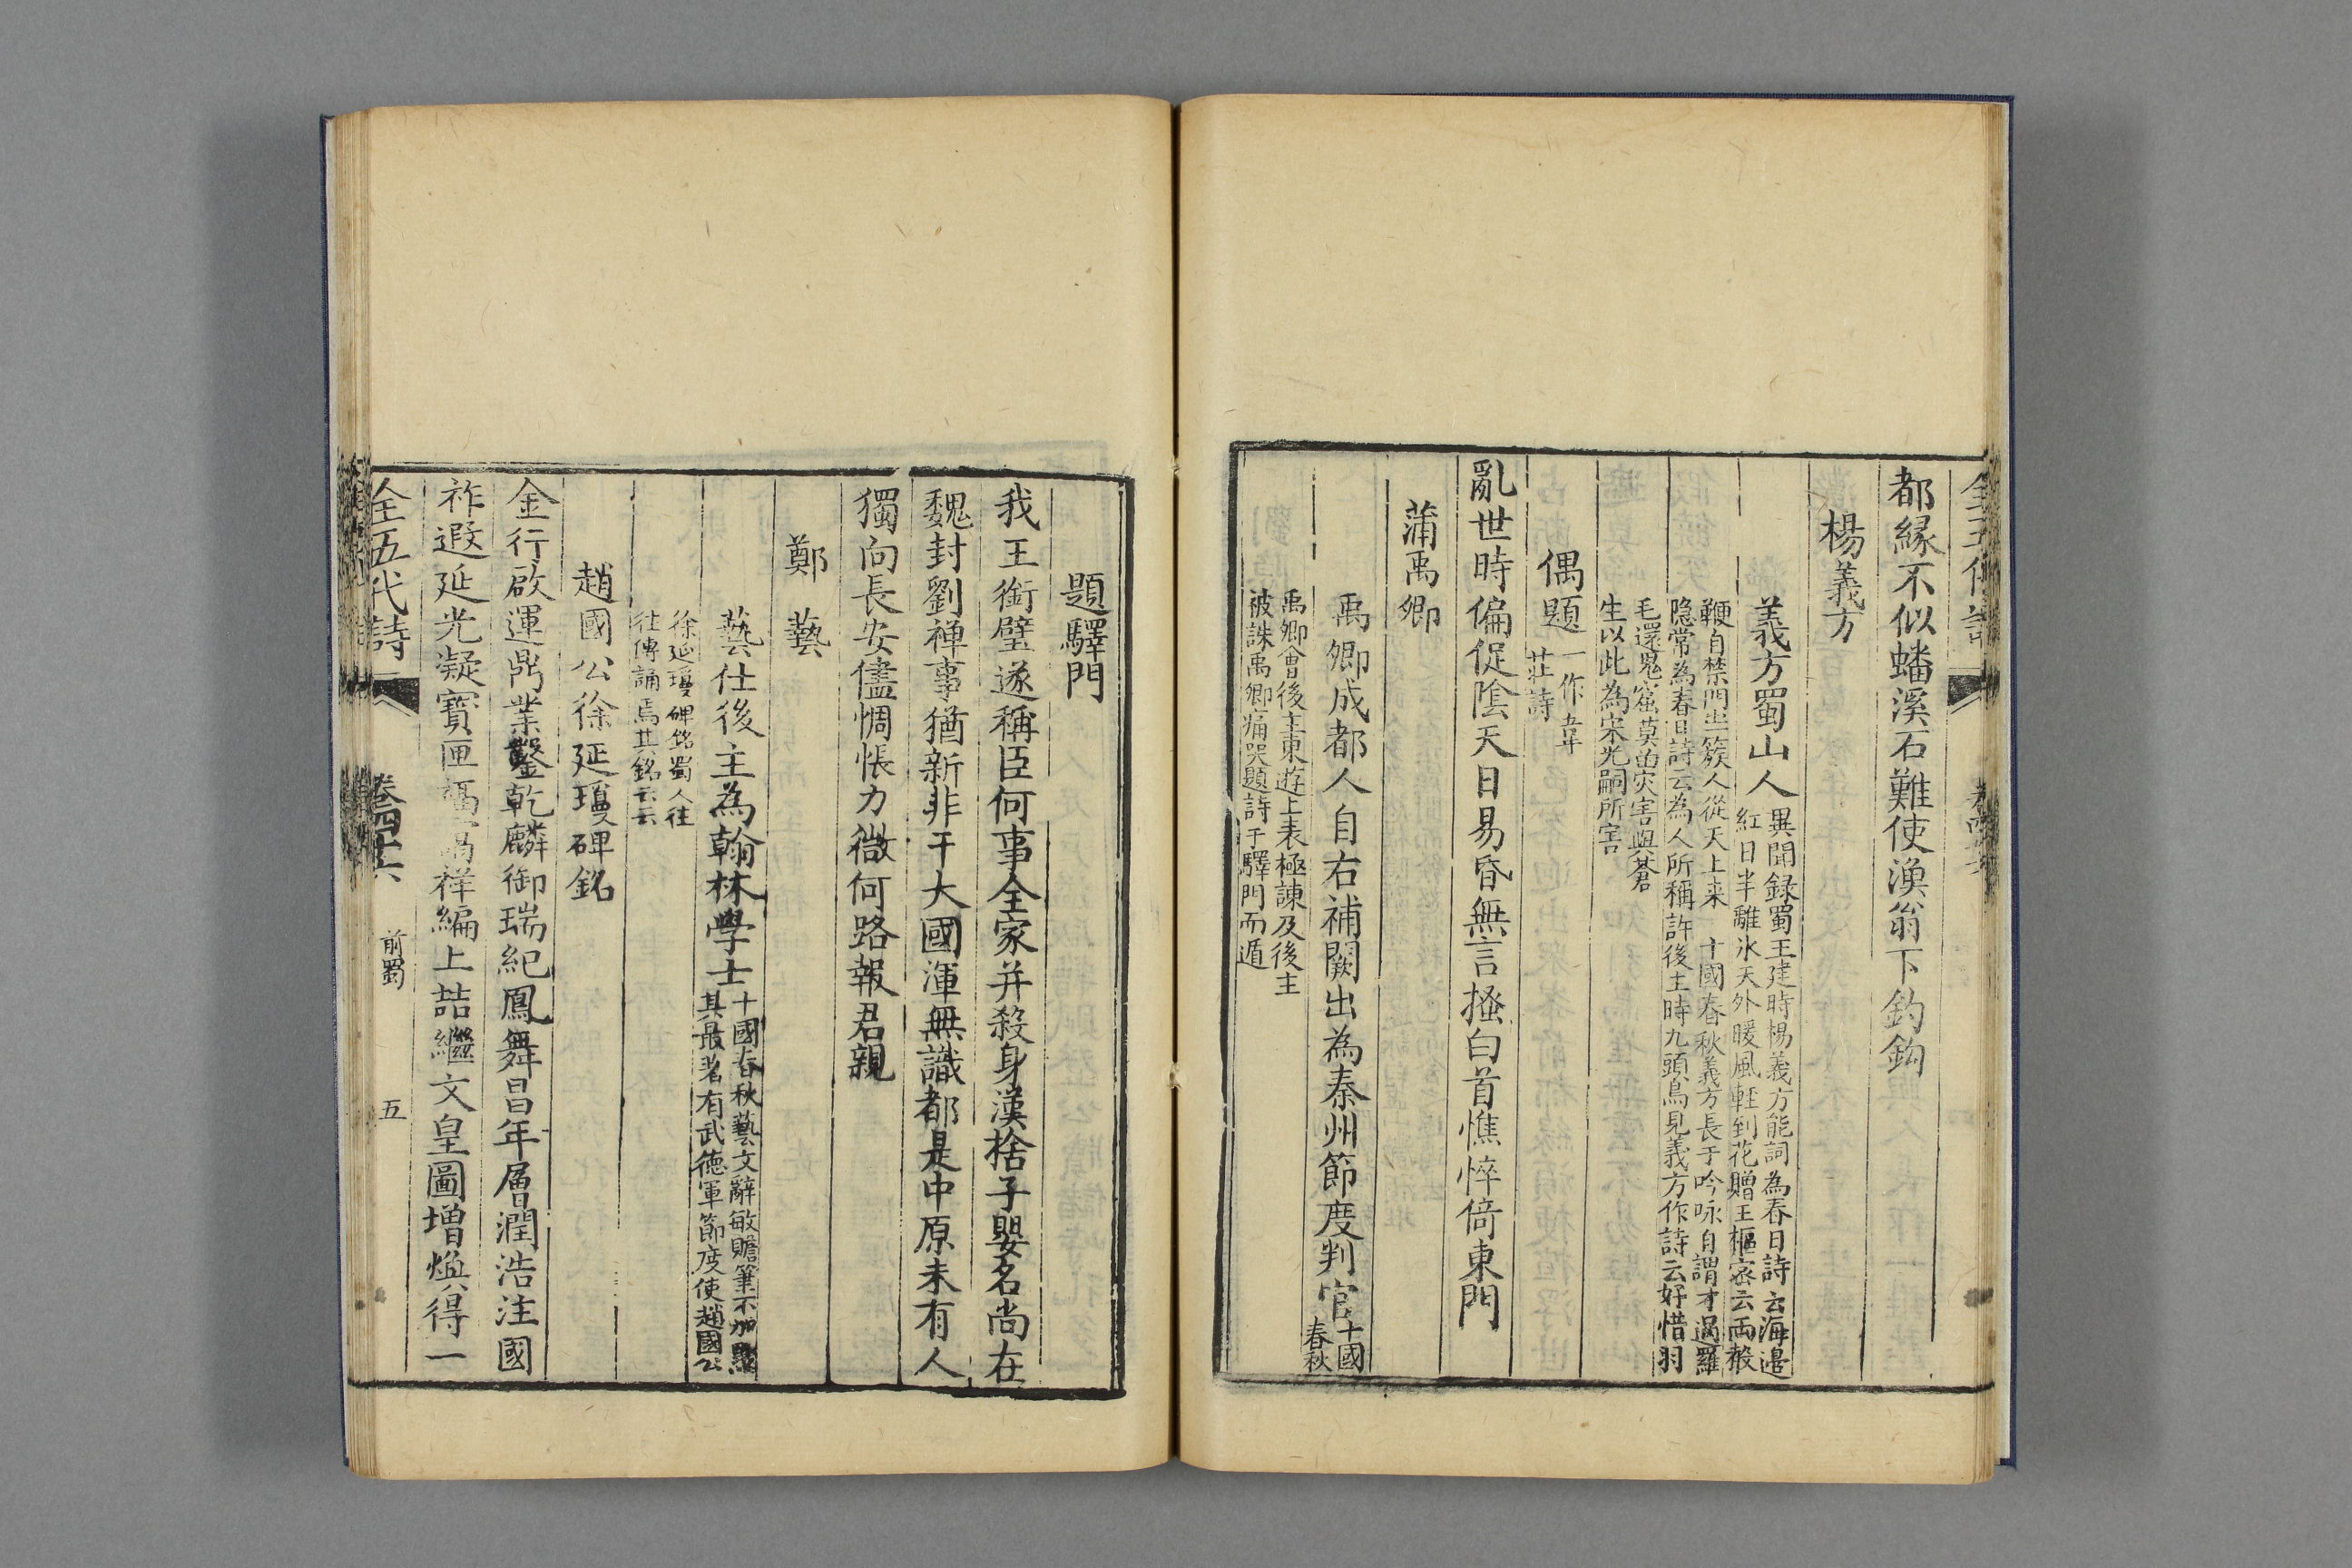 都縁不似蟠溪石難使漁翁下釣鈎
楊義方
義方蜀山人
異聞録蜀王建時楊義方能詞為春日詩云海邊
紅日半離氷天外暖風輕到花贈王樞宻云兩般
鞭自禁門出一簇人從天上来 十國春秋義方長于吟咏自謂才過羅
隐常為春日詩云為人所稱許後主時九頭鳥見義方作詩云好惜羽
毛還鬼窟莫留灾害與蒼
生以此為宋光嗣所害
偶題
一作韋
莊詩
亂世時偏促陰天日易昏無言搔白首憔悴倚東門
蒲禹卿
禹卿成都人自右補闕出為秦州節度判官
十國
春秋
禹卿會後主東遊上表極諌及後主
被誅禹卿痛哭題詩于驛門而遁
題驛門
我王衘璧遂稱臣何事全家并殺身漢捨子嬰名尚在
魏封劉禅事猶新非干大國渾無識都是中原未有人
獨向長安儘惆悵力微何路報君親
鄭藝
藝仕後主為翰林學士
十國春秋藝文辭敏贍筆不加點
其最著有武德軍節度使趙國公
徐延瓊碑銘蜀人往
往傳誦焉其銘云云
趙國公徐延瓊碑銘
金行啟運鼎業鑿乾麟御瑞紀鳳舞昌年層潤浩注國
祚遐延光凝寳匣祥編上喆繼文皇圖增煥得一
全五代詩
卷四十六
前蜀
五